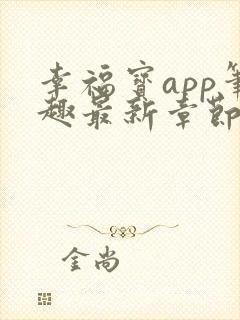 幸福宝app笔
趣最新章节
金尚